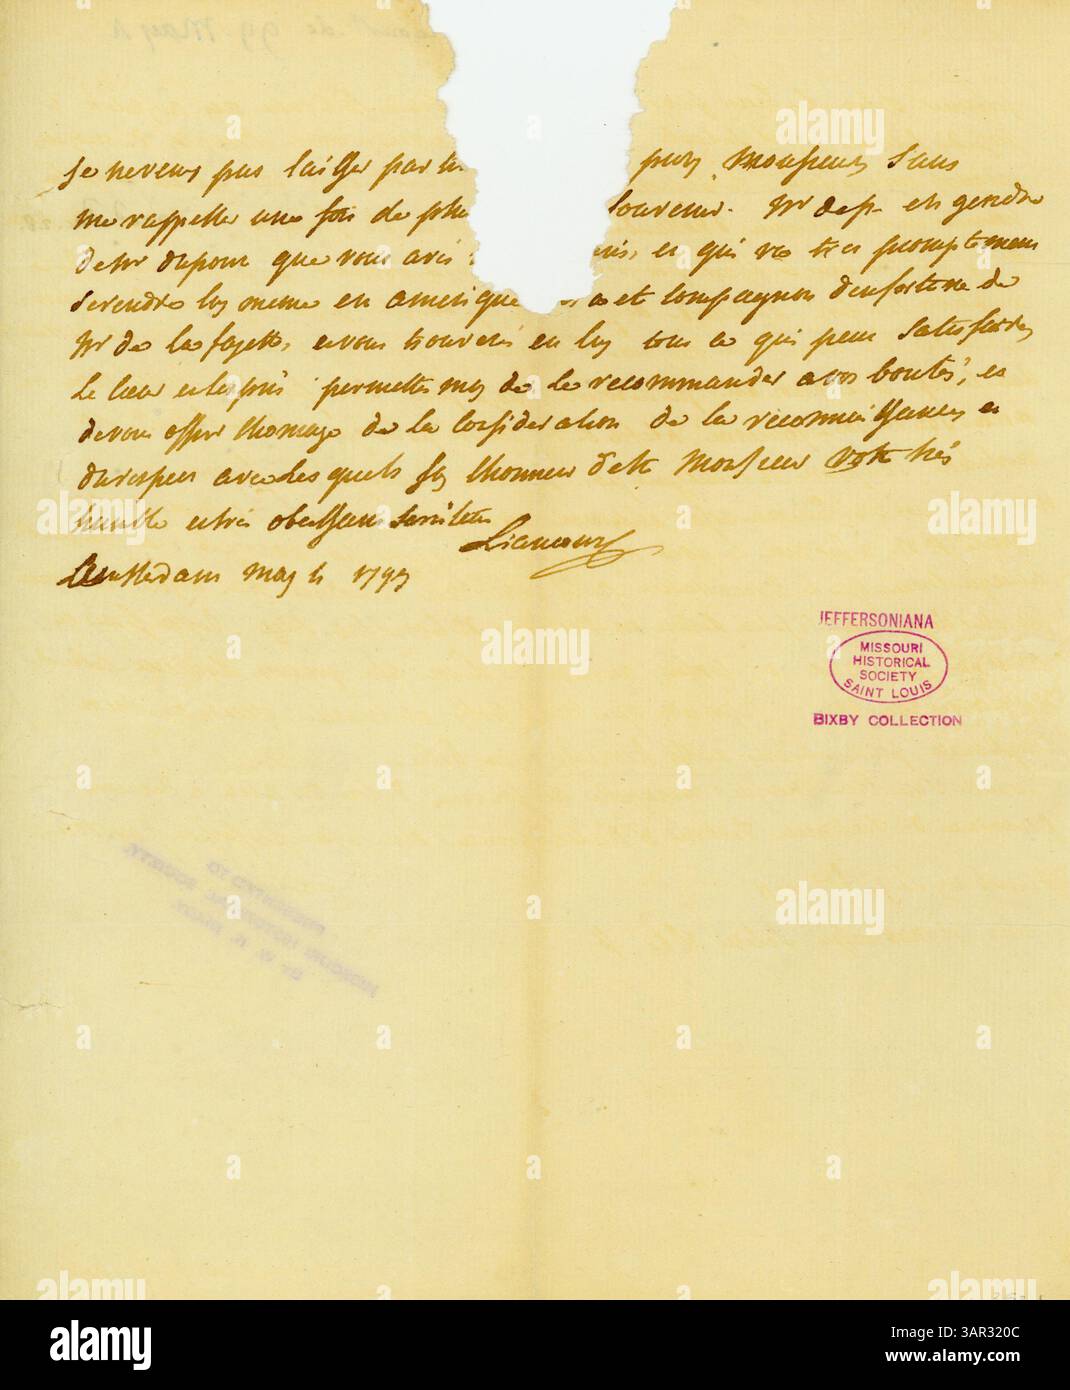 Je ne veux pas laisser partir pusy, Monsieur, sans
me rappeller une fois de plus souvenir. Mr de p. est gendre
de Mr dupont que vous avés et qui va tres promptement
se rendre luy meme en amerique et compagnon d'infortune de
Mr de la fayette, et vous trouverés en luy tous ce qui peut satisfaire
le cœur et l'esprit permettes moy de le recommander a vos bontés, et
de vous offrir lhomage de la consideration de la reconnaissance et
du respect avec lesquels jay lhonneur d'etre Monsieur votre très
humble et très obeissant serviteur
Liancourt
Amsterdam may 4 1799
JEFFERSONIANA
MISSOURI
HISTORICAL
SOCIETY
SAINT LOUIS
BIXBY COLLECTION
PRESENTED TO
MISSOURI HISTORICAL SOCIETY,
BY W. K. BIXBY
alamy
alamy
Image ID: 3AR320C
www.alamy.com